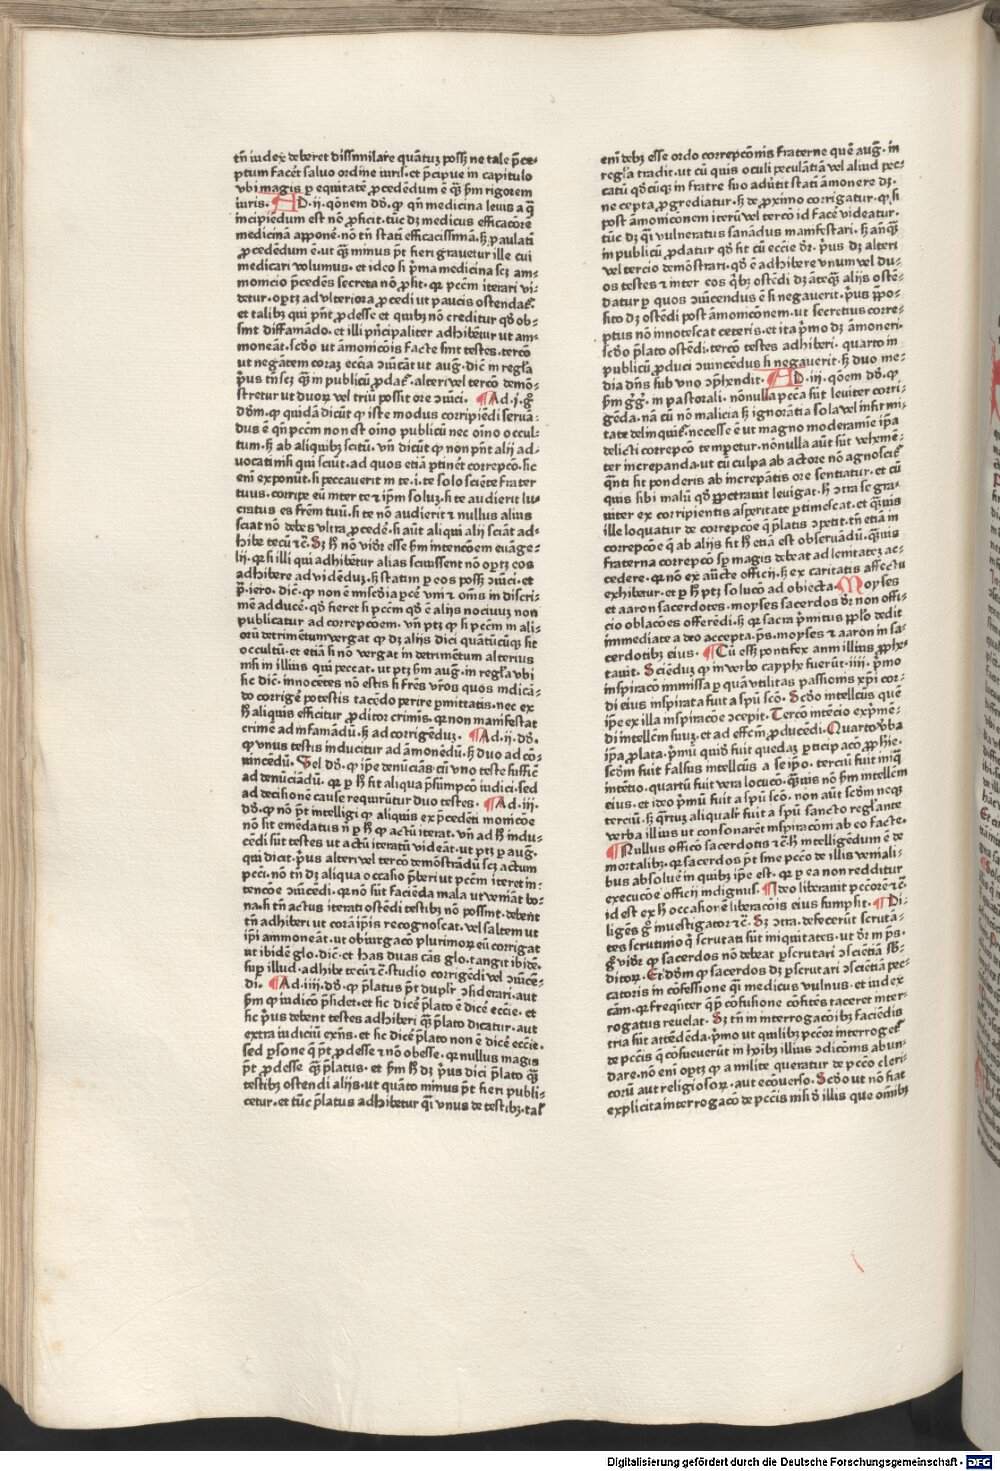 tñ iudex deberet dissimilare quãtuȝ possȝ ne tale p̃ce⸗
ptum facẽt saluo ordine iuris. et p̃cipue in capitulo
vbi magis ꝑ equitatẽ ꝓcedẽdum ẽ qȝ̃ ẜm rigorem
iuris. AD. ii. q̃onem dõ. ꝙ qñ medicina leuis a q̃
incipiẽdum est nõ ꝓficit. tũc dȝ medicus efficacõre
medicinã apponẽ. nõ tñ statĩ efficacissimã. sȝ paulatĩ
ꝓcedẽdum ẽ. ut qȝ̃ minus p̃t fieri grauetur ille cui
medicari volumus. et ideo si p̃ma medicina scȝ am⸗
monicio p̃cedẽs secreta nõ ꝓfit. qꝛ pccm̃ iterari vi⸗
detur. oꝑtȝ ad vlteriora ꝓcedi ut paucis ostendat̃.
et talibȝ qui pñt ꝓdesse et quibȝ nõ creditur qd̃ ob⸗
sint diffamãdo. et illi pñcipaliter adhibẽtur ut am⸗
moneãt. scd̃o ut amonicõis facte sint testes. tercõ
ut negãtem coraȝ eccĩa ↄuĩcãt ut aug̃. dic̃ in regl̃a
p̃us tñ scȝ qȝ̃ in publicũ ꝓdat̃. alteri vel tercõ demõ⸗
stretur ut duoꝝ vel triũ possit ore ↄuĩci. ¶ Ad. j. g̊
dõm. ꝙ quidã dicũt ꝙ iste modus corripiẽdi serua⸗
dus ẽ qñ pccm̃ non est oĩno publicũ nec oĩno occul⸗
tum. sȝ ab aliquibȝ scitũ. vñ dicũt ꝙ non pñt alij ad⸗
uocati nisi qui sciũt. ad quos etiã ꝑtinet correpcõ. sic
eñi exponũt. si peccauerit in te. i. te solo sciẽte frater
tuus. corripe eũ inter te ⁊ ip̃m soluȝ. si te audierit lu⸗
cratus es fr̃em tuũ. si te nõ audierit ⁊ nullus alius
sciat nõ debes vltra ꝓcedẽ. si aũt aliqui alij sciãt ad⸗
hibe tecũ ⁊c̃. Sȝ h̃ nõ vid̃r esse ẜm intencõem euãge⸗
lij. qꝛ si illi qui adhibẽtur alias sciuissent nõ oꝑtȝ eos
adhibere ad vidẽduȝ. sȝ statim ꝑ eos possȝ ↄuĩci. et
p̃. iero. dic̃. ꝙ non ẽ mĩscd̃ia ꝑcẽ vni ⁊ oĩms in discri⸗
mẽ adducẽ. qd̃ fieret si pccm̃ qd̃ ẽ alijs nociuuȝ non
publicatur ad correpcõem. vñ ptȝ ꝙ si pccm̃ in ali⸗
orũ detrimẽtum vergat ꝙ dȝ alijs dici quãtũcũqȝ sit
occultũ. et etiã si nõ vergat in detrimẽtum alterius
nisi in illius qui peccat. ut ptȝ ẜm aug̃. in regl̃a vbi
sic dic̃. innocẽtes nõ estis si fr̃es vr̃os quos indicã⸗
do corrigẽ potestis tacẽdo perire ꝑmittatis. nec ex
h̃ aliquis efficitur ꝓditor crimĩs. qꝛ non manifestat
crimẽ ad infamãdũ. sȝ ad corrigẽduȝ. ¶ Ad. ii. dõ.
ꝙ vnus testis inducitur ad amonẽdũ. sȝ duo ad cõ⸗
uincẽdũ. Vel dõ. ꝙ ip̃e denũciãs. cũ vno teste sufficĩt
ad denũciãdũ. qꝛ ꝑ h̃ fit aliqua p̃sumpcõ iudici. sed
ad decisionẽ cause requirũtur duo testes. ¶ Ad. iij.
dõ. ꝙ nõ p̃t intelligi ꝙ aliquis ex p̃cedẽti monicõe
nõ sit emẽdatus ñ ꝑ h̃ ꝙ actũ iterat. vñ ad h̃ indu⸗
cẽdi sũt testes ut actũ iteratũ videãt. ut ptȝ ꝑ aug̃.
qui dicat. p̃us alteri vel tercõ demõstrãdũ scȝ actum
pcc̃i. nõ tñ dȝ aliqua occasio p̃beri ut pccm̃ iteret in⸗
tencõe ↄuĩcẽdi. qꝛ nõ sũt faciẽda mala ut veniãt bo⸗
na. si tñ actus iterati ostẽdi testibȝ nõ possint. debẽnt
tñ adhiberi ut corã ip̃is recognoscat. vel saltem ut
ip̃i ammoneãt. ut obiurgacõ plurimoꝝ eũ corrigat
ut ibidẽ glo. dic̃. et has duas cãs glo. tangit ibidẽ.
suꝑ illud. adhibe tecũ ⁊c̃. studio corrigẽdi vel ↄuĩcẽ⸗
di. ¶ Ad. iiij. dõ. ꝙ p̃latus p̃t dupl̃r ↄsiderari. aut
ẜm ꝙ iudicõ p̃sidet. et sic dicẽ p̃lato ẽ dicẽ ecc̃ie. et
sic p̃us debent testes adhiberi qȝ̃ p̃lato dicatur. aut
extra iudiciũ ex̃ns. et sic dicẽ p̃lato non ẽ dicẽ ecc̃ie.
sed ꝑsone q̃ p̃t ꝓdesse ⁊ nõ obesse. qꝛ nullus magis
p̃t ꝓdesse qȝ̃ p̃latus. et ẜm h̃ dȝ p̃us dici p̃lato qȝ̃
testibȝ ostendi alijs. ut quãto minus p̃t fieri publi⸗
cetur. et tũc p̃latus adhibetur q̃i vnus de testibȝ. tal̃
eñi debȝ esse ordo correpcõnis fraterne quẽ aug̃. in
regl̃a tradit. ut cũ quis oculi peculãtiã vel aliud pec⸗
catũ qd̃cũqȝ in fratre suo aduẽtit statĩ amonere dȝ.
ne cepta ꝓgrediatur. sȝ de ꝓximo corrigatur. ꝙ si
post amonicionem iterũ vel tercõ id facẽ videatur.
tũc dȝ q̃i vulneratus sanãdus manifestari. sȝ añ qȝ̃
in publicũ ꝓdatur qd̃ fit cũ ecc̃ie d̃r. p̃us dȝ alteri
vel tercio demõstrari. qd̃ ẽ adhibere vnum vel du⸗
os testes ⁊ inter eos q̃bȝ ostẽdi dȝ ãteqȝ̃ alijs ostẽ⸗
datur ꝑ quos ↄuincendus ẽ si negauerit. p̃us p̃po⸗
sito dȝ ostẽdi post amonicõnem. ut secretius corre⸗
ptus nõ innotescat ceteris. et ita p̃mo dȝ amoneri⸗
scd̃o p̃lato ostẽdi. tercõ testes adhiberi. quarto in
publicũ ꝓduci ↄuincẽdus si negauerit. sȝ duo me⸗
dia dñs sub vno ↄp̃hẽndit. ¶ AD. iij. q̃õem dõ. ꝙ
ẜm g̃g̃. in pastorali. nõnulla pccã sũt leuiter corri⸗
gẽda. nã cũ nõ malicia sȝ ignorãtia sola vel infirmi⸗
tate delinquit̃. necesse ẽ ut magno moderamie ip̃a
delicti correpcõ temꝑetur. nõnulla aũt sũt vehemẽ⸗
ter increpanda. ut cũ culpa ab actore nõ agnoscit̃
qñti sit ponderis ab increpãtis ore sentiatur. et cũ
quis sibi malũ qd̃ ꝑpetrauit leuigat. h̃ ↄtra se gra⸗
uiter ex corripientis asperitate ꝑtimescat. et quãuis
ille loquatur de correpcõe q̃ p̃latis ↄpetit. tñ etiã in
correpcõe q̃ ab alijs fit h̃ etiã est obseruãdũ. quãuis
fraterna correpcõ sp̃ magis debeat ad lenitateȝ ac⸗
cedere. qꝛ nõ ex aucte officij. sȝ ex caritatis affectu
exhibetur. et ꝑ h̃ ptȝ solucõ ad obiecta. Moyses
et aaron sacerdotes. moyses sacerdos d̃r non offi⸗
cio oblacões offerẽdi. sȝ ꝙ sacra p̃mitus pp̃lo dedit
immediate a deo accepta. p̃s. moyses ⁊ aaron in sa⸗
cerdotibȝ eius. ¶ Cũ essȝ pontifex anni illius ꝓphe⸗
tauit. Sciẽduȝ ꝙ in verbo cayphe fuerũt. iiij. p̃mo
inspiracõ inmissa ꝑ quã vtilitas passionis xp̃i cor⸗
di eius inspirata fuit a sp̃u scõ. Scd̃o intellcũs quẽ
ip̃e ex illa inspiracõe ↄcepit. Tercõ intẽcio exp̃mẽ⸗
di intellcm̃ suuȝ. et ad effcm̃ ꝓducẽdi. Quarto v̾ba
ip̃a ꝓlata. p̃mũ quid̃ fuit quedaȝ ꝑticipacõ ꝓphie.
scd̃m fuit falsus intellcũs a se ip̃o. terciũ fuit iniq̃
intẽtio. quartũ fuit vera locucõ. quãuis nõ ẜm intellcm̃
eius. et ideo p̃mũ fuit a sp̃u scõ. non aũt scd̃m necqȝ
terciũ. sȝ q̃rtuȝ aliqual̃r fuit a sp̃u sancto regl̃ante
verba illius ut consonarẽt inspiracõni ab eo facte.
¶ Nullus officõ sacerdotis ⁊c̃. h̃ intelligẽdum ẽ de
mortalibȝ. qꝛ sacerdos p̃t sine pccõ de illis veniali⸗
bus absoluẽ in quibȝ ip̃e est. qꝛ ꝑ ea non redditur
execucõe officij indignus. ¶ Ideo liberauit pccõrẽ ⁊c̃.
id est ex h̃ occasiorẽ liberacõis eius sumpsit. ¶ Di⸗
ligẽs g̊ inuestigator ⁊c̃. Sȝ ↄtra. defecerũt scruta⸗
tes scrutinio q̃ scrutati sũt iniquitates. ut d̃r in p̃s.
g̊ vid̃r ꝙ sacerdos nõ debeat ꝑscrutari ↄsciẽtiã sb̃⸗
ditoꝝ. Et dõm ꝙ sacerdos dȝ ꝑscrutari ↄsciẽtiã pec⸗
catoris in cõfessione q̃i medicus vulnus. et iudex
cãm. qꝛ freq̃nter q̃p̃ cõfusione cõfitẽs taceret inter⸗
rogatus reuelat. Sȝ tñ in interrogacõibȝ faciẽdis
tria sũt attẽdẽda. p̃mo ut quilibȝ pccõr interroget̃
de pccĩs q̃ cõsueuerũt in hoĩbȝ illius ↄdicõnis abun⸗
dare. nõ eñi oꝑtȝ ꝙ a milite queratur de pccõ cleri⸗
corũ aut religiosoꝝ. aut ecouerso. Scd̃o ut nõ fiat
explicita interrogacõ de pccĩs nisi d̾ illis que oĩm̃ibȝ
Digitalisierung gefördert durch die Deutsche Forschungsgemeinschaft - DFG